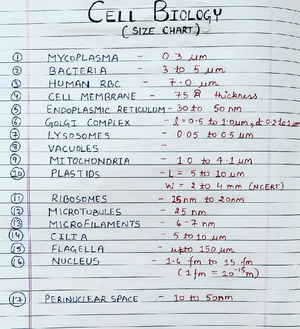 CELL BIOLOGY
(SIZE CHART)
① MYCOPLASMA - 0.3 µm
② BACTERIA - 3 to 5 µm
③ HUMAN RBC - 7.0 µm
④ CELL MEMBRANE - 75 Å thickness
⑤ ENDOPLASMIC RETICULUM - 30 to 50 nm
⑥ GOLGI COMPLEX - l = 0.5 to 1.0 µm, d: 0.2 to 1 µm
⑦ LYSOSOMES - 0.05 to 0.5 µm
⑧ VACUOLES -
⑨ MITOCHONDRIA - 1.0 to 4.1 µm
⑩ PLASTIDS - L = 5 to 10 µm
W = 2 to 4 mm (NCERT)
⑪ RIBOSOMES - 15 nm to 20nm
⑫ MICROTUBULES - 25 nm
⑬ MICROFILAMENTS - 6-7 nm
⑭ CILIA - 5 to 10 µm
⑮ FLAGELLA - upto 150 µm
⑯ NUCLEUS - 1.6 fm to 15 fm
(1 fm = 10⁻¹⁵ m)
⑰ PERINUCLEAR SPACE - 10 to 50nm